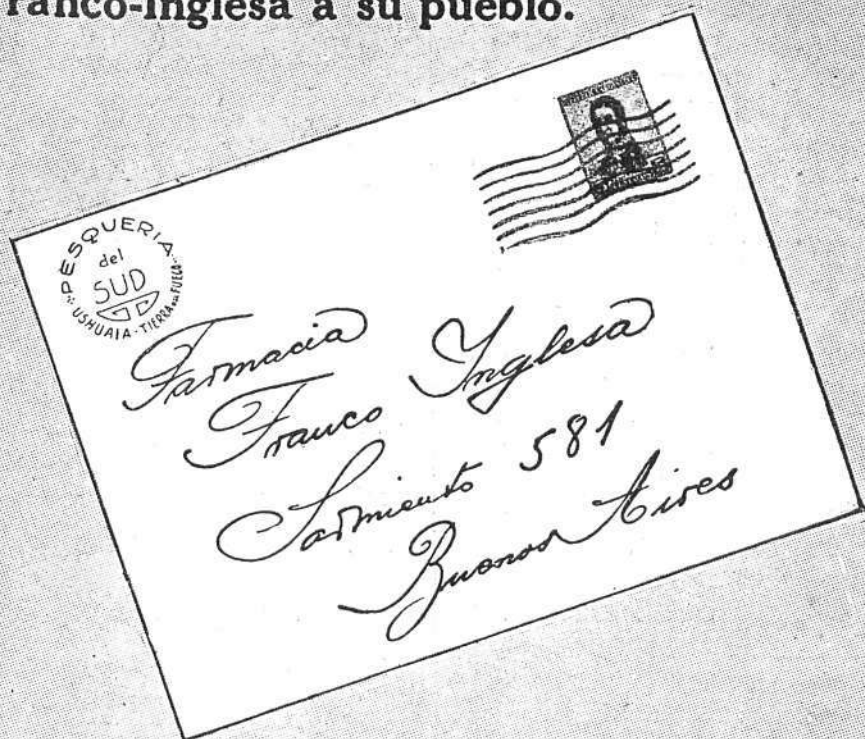 ranco-Inglesa a su pueblo.
PESQUERIA
del
SUD
USHUAIA - TIERRA DEL FUEGO
Farmacia
Franco Inglesa
Sarmiento 581
Buenos Aires